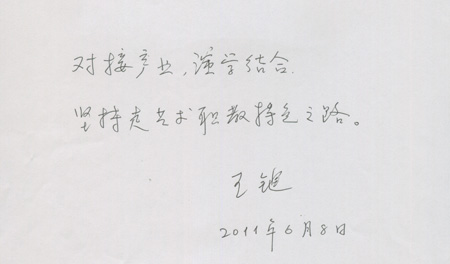 对接产业,演学结合.
坚持走艺术职教特色之路。
王键
2011年6月8日